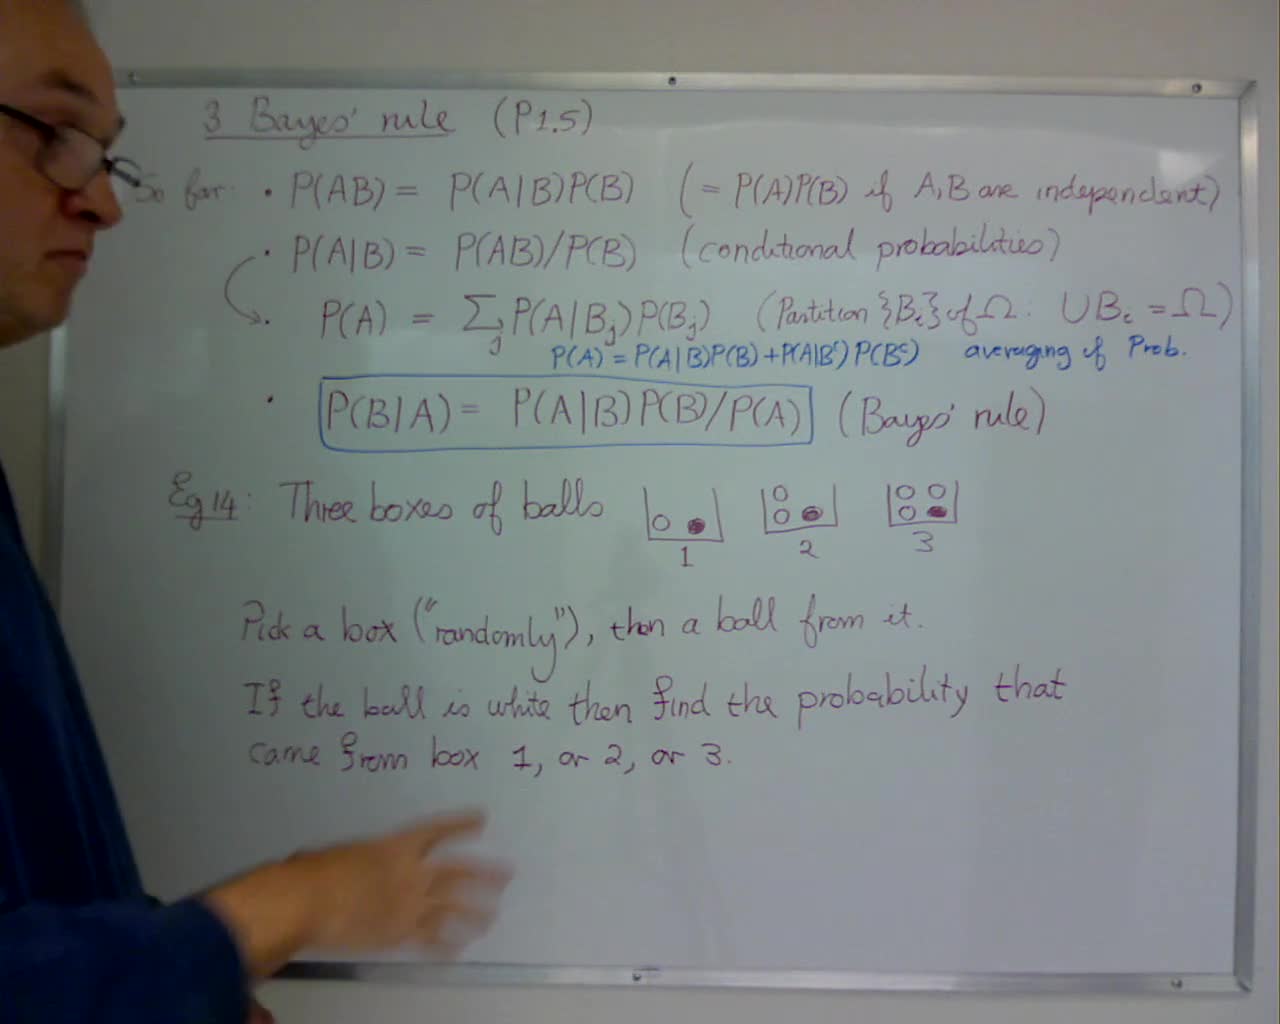 3 Bayes' rule (P1.5)
So far: • P(AB) = P(A|B)P(B) (= P(A)P(B) if A,B are independent)
• P(A|B) = P(AB)/P(B) (conditional probabilities)
• P(A) = ∑j P(A|Bj)P(Bj) (Partition {Bi} of Ω: ∪Bi = Ω)
P(A) = P(A|B)P(B)+P(A|Bᶜ)P(Bᶜ) averaging of Prob.
• P(B|A) = P(A|B)P(B)/P(A) (Bayes' rule)
Eg 14: Three boxes of balls
1 2 3
Pick a box ("randomly"), then a ball from it.
If the ball is white then find the probability that
came from box 1, or 2, or 3.